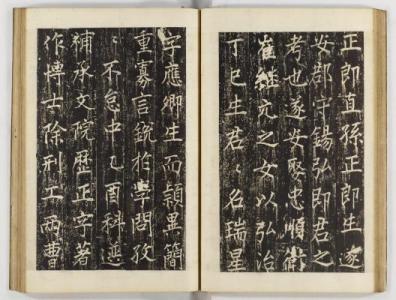 正郎直孫正郎生遂
安郡守錫弘即君之
考也遂安娶忠順衛
崔継允之女以弘治
丁巳生君〃名瑞星
字應卿生而穎異簡
重寡言銳於學問孜
〃不怠中乙酉科選
補承文院歷正字著
作博士除刑工兩曹